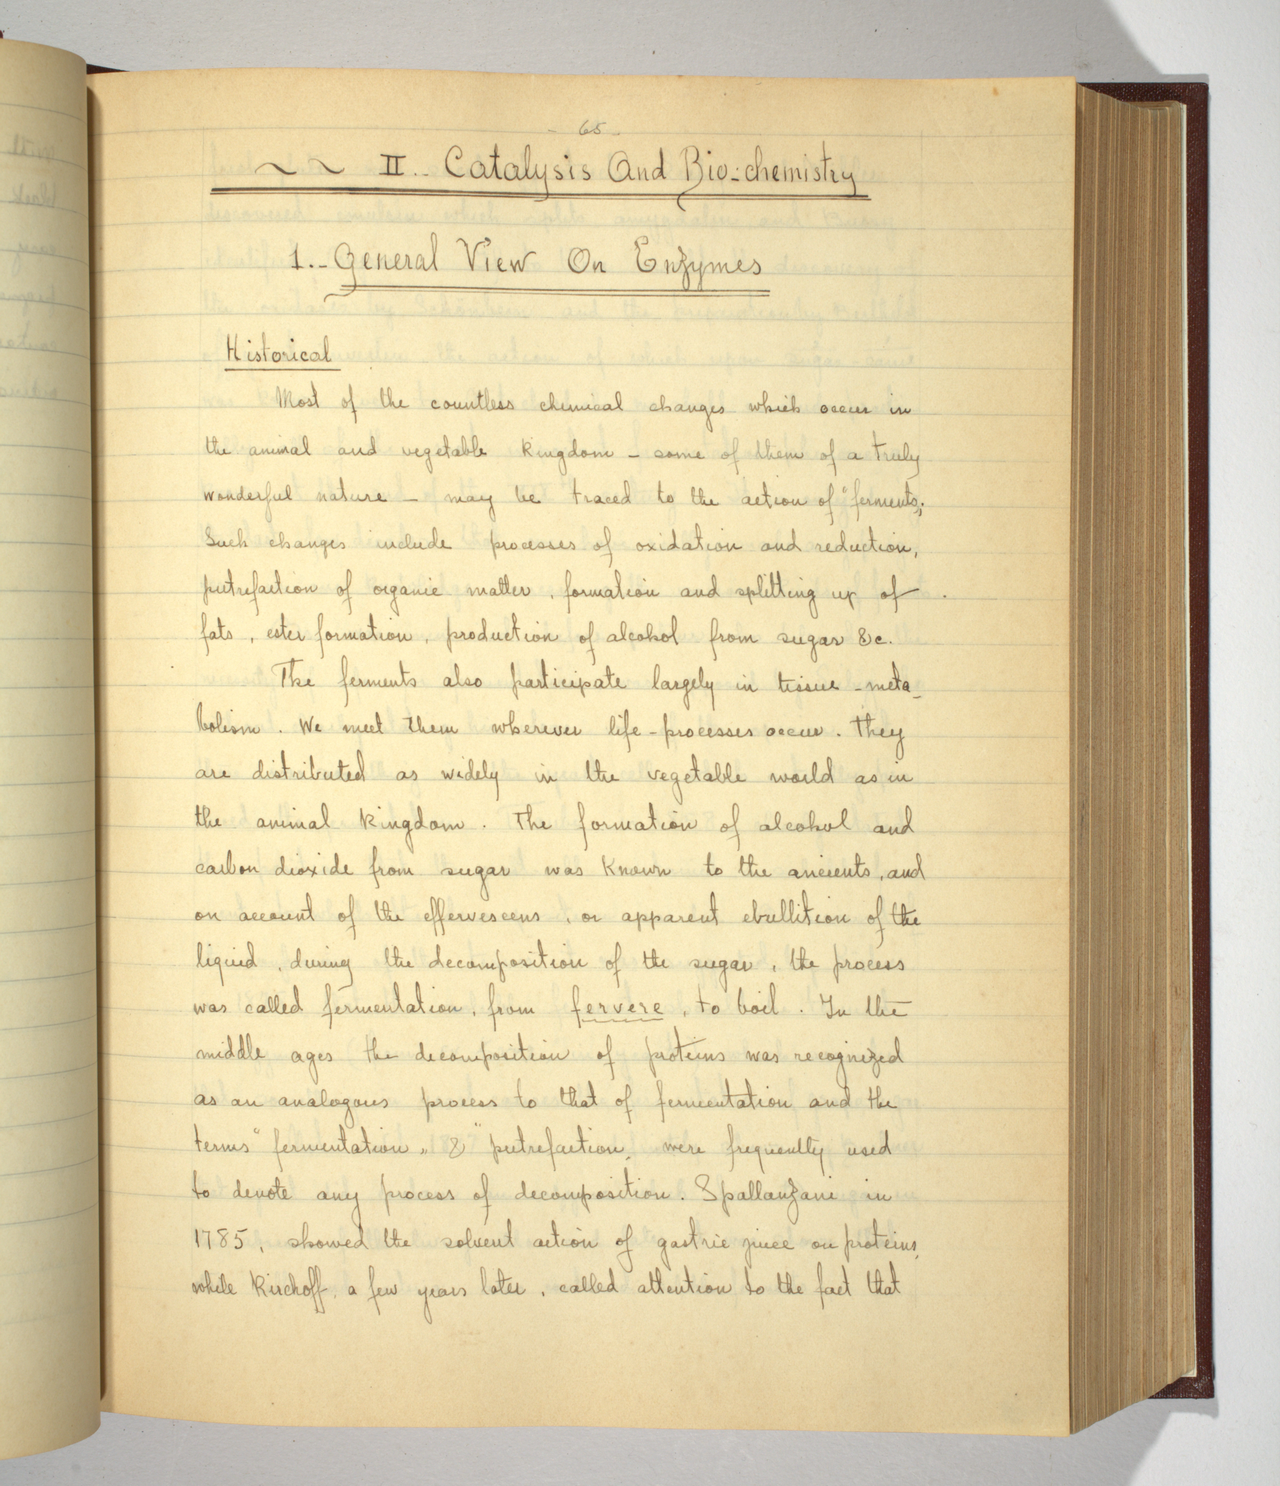 - 65 -
~ ~ II.. Catalysis And Bio-chemistry
1.. General View On Enzymes
Historical
Most of the countless chemical changes which occur in
the animal and vegetable kingdom – some of them of a truly
wonderful nature – may be traced to the action of "ferments„.
Such changes include processes of oxidation and reduction,
putrefaction of organic matter, formation and splitting up of
fats, ester formation, production of alcohol from sugar &c.
The ferments also participate largely in tissue-meta-
bolism. We meet them wherever life-processes occur. They
are distributed as widely in the vegetable world as in
the animal kingdom. The formation of alcohol and
carbon dioxide from sugar was known to the ancients, and
on account of the effervescens, or apparent ebullition of the
liquid, during the decomposition of the sugar, the process
was called fermentation, from fervere, to boil. In the
middle ages the decomposition of proteins was recognized
as an analogous process to that of fermentation and the
terms "fermentation„ & "putrefaction„ were frequently used
to denote any process of decomposition. Spallanzani in
1785, showed the solvent action of gastric juice on proteins,
while Kirchoff, a few years later, called attention to the fact that